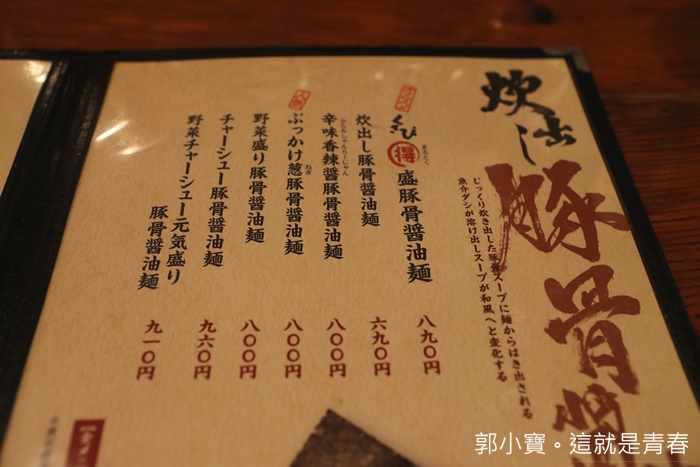 炊出
豚骨醤
じっくり炊き出した豚骨スープに麺からはき出される
魚介ダシが溶け出しスープが和風へと変化する
得盛豚骨醤油麺
八九〇円
炊出し豚骨醤油麺
六九〇円
辛味香辣醤豚骨醤油麺
八〇〇円
ぶっかけ葱豚骨醤油麺
ねぎ
八〇〇円
野菜盛り豚骨醤油麺
八〇〇円
チャーシュー豚骨醤油麺
九六〇円
野菜チャーシュー元気盛り
豚骨醤油麺
九一〇円
郭小寶。這就是青春